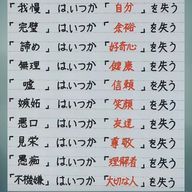 「我慢」はいつか「自分」を失う
「完璧」はいつか「余裕」を失う
「諦め」はいつか「好奇心」を失う
「無理」はいつか「健康」を失う
「嘘」はいつか「信頼」を失う
「嫉妬」はいつか「笑顔」を失う
「悪口」はいつか「友達」を失う
「見栄」はいつか「尊敬」を失う
「愚痴」はいつか「理解者」を失う
「不機嫌」はいつか「大切な人」を失う